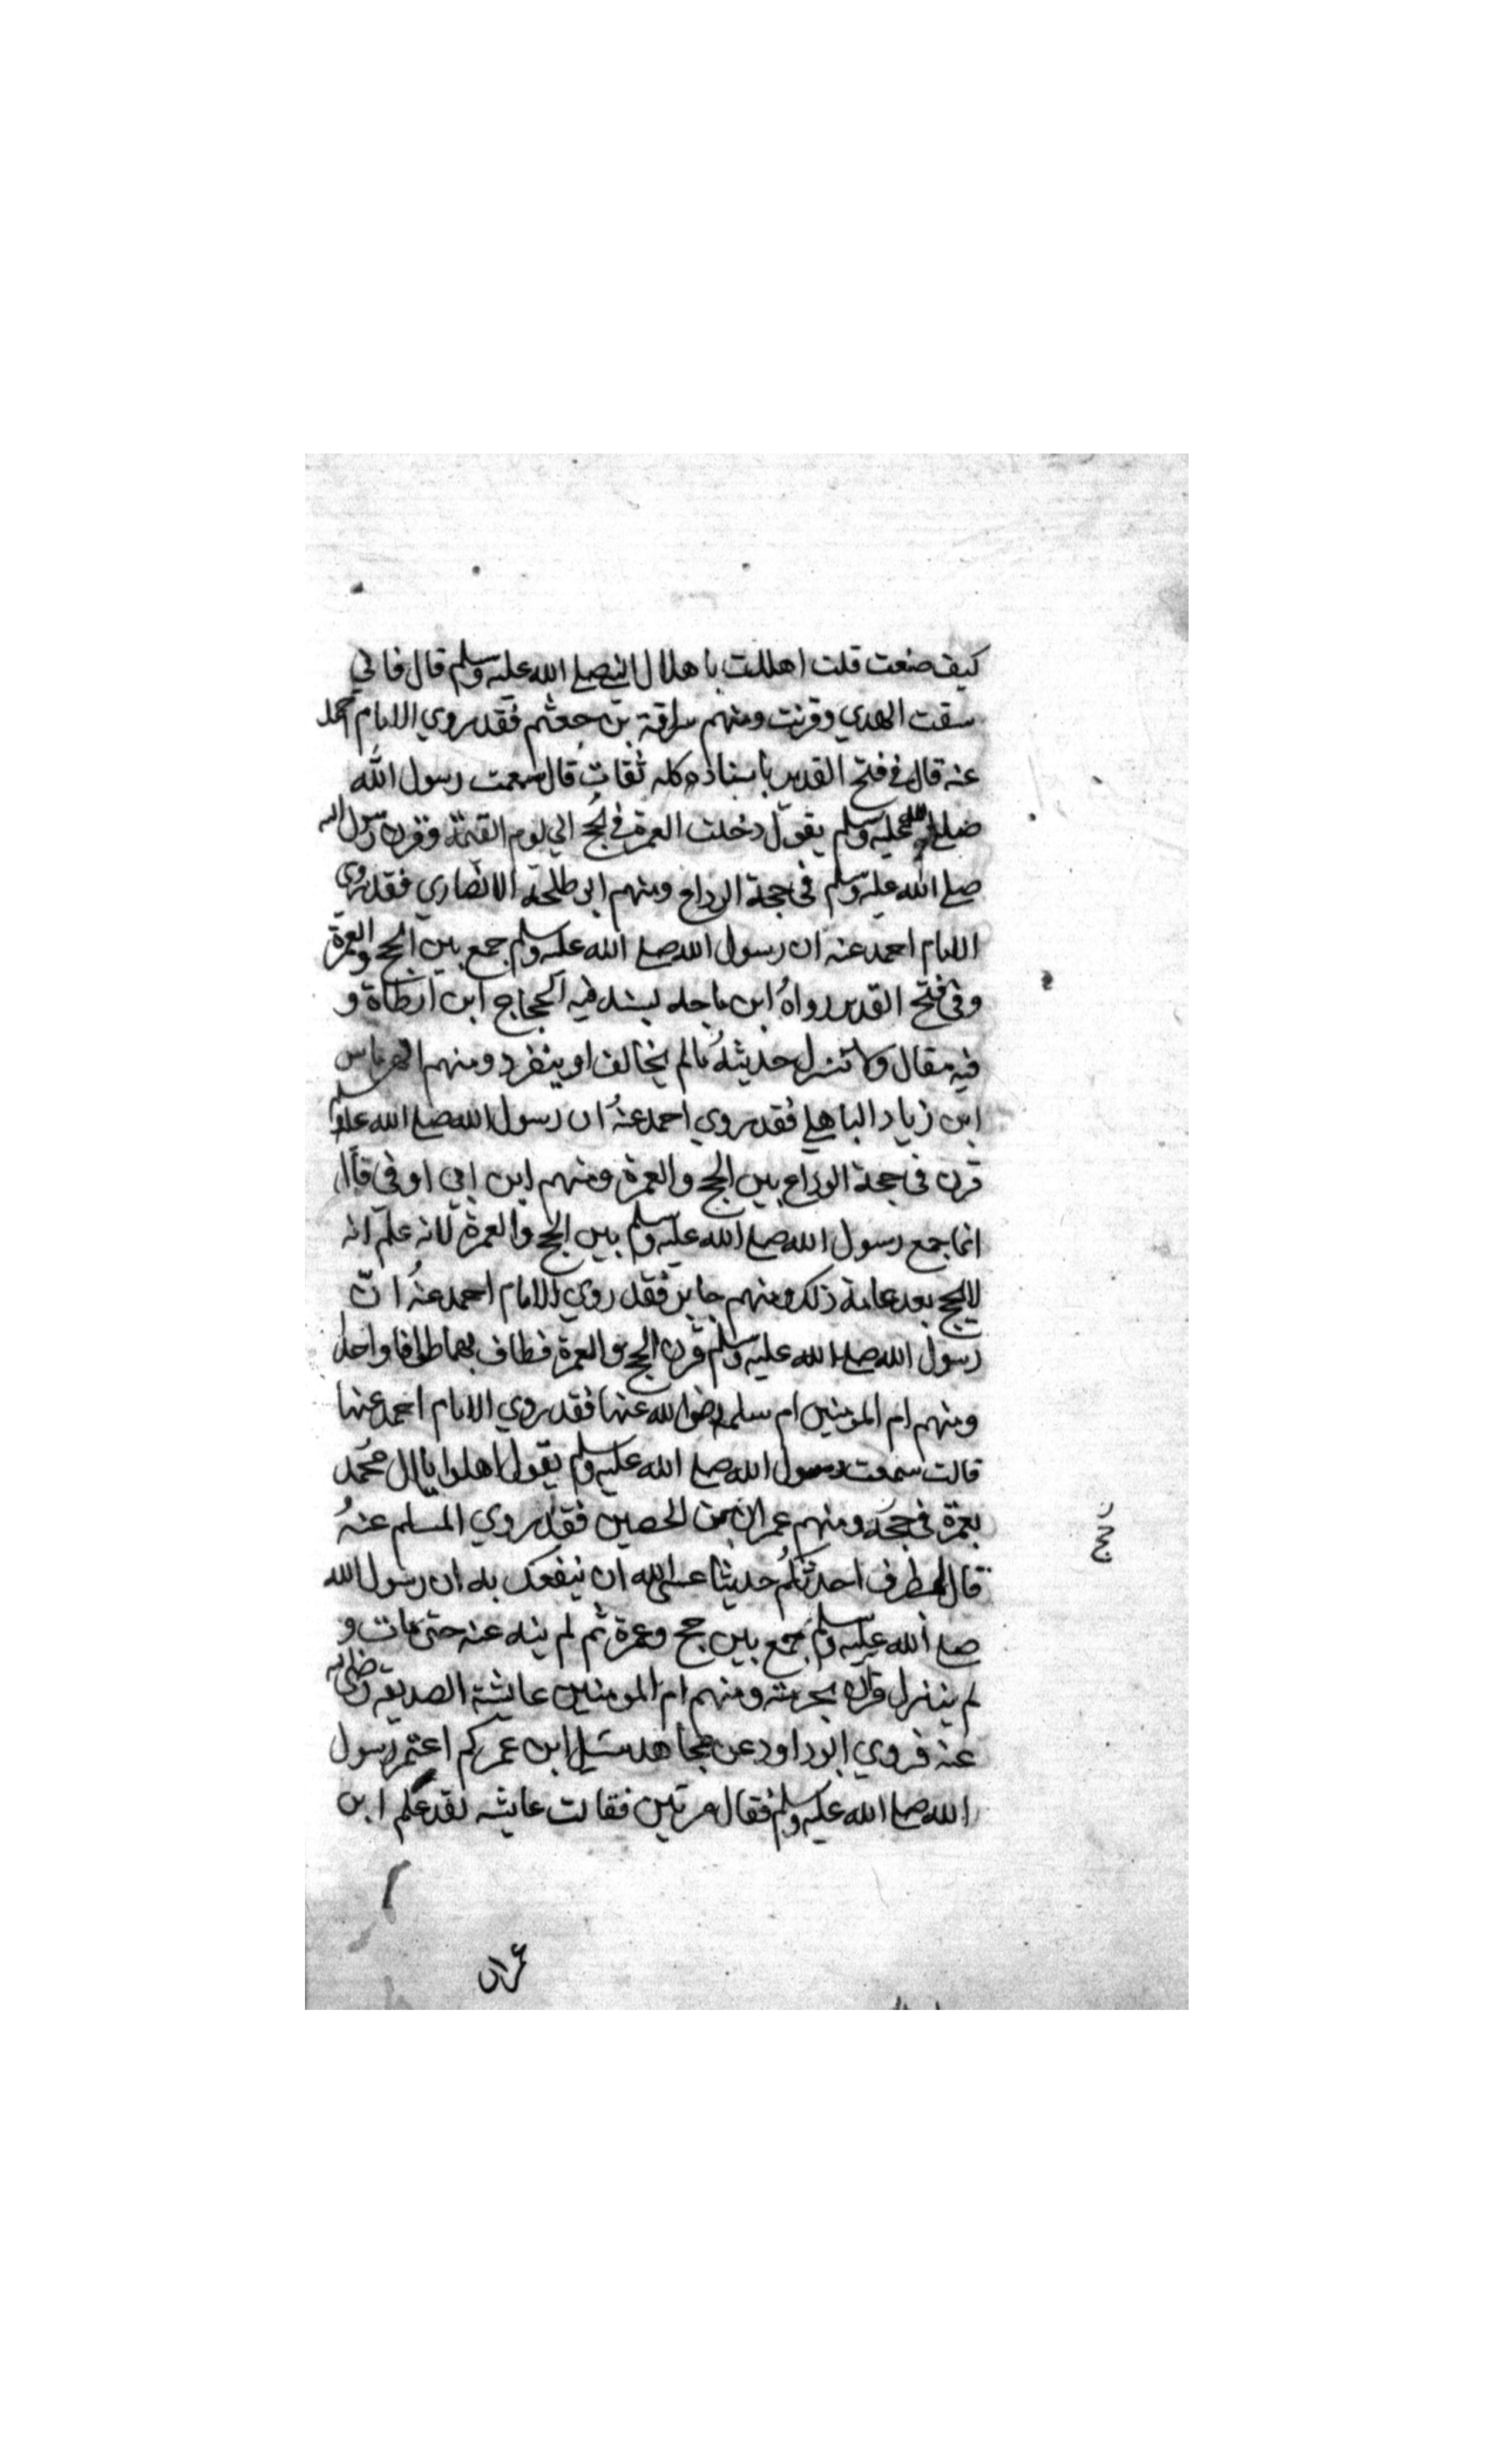 كيف صنعت قلت اهللت باهلال النبي صلي الله عليه وسلم قال فاني
سقت الهدي وقرنت ومنهم سراقة بن جعشم فقد روي الامام احمد
عنه قال في فتح القدير باسناده كله ثقات قال سمعت رسول الله
صلي الله عليه وسلم يقول دخلت العمرة في الحج الي يوم القيمة وقرن رسول الله
صلي الله عليه وسلم في حجة الوداع ومنهم ابو طلحة الانصاري فقد روي
الامام احمد عنه ان رسول الله صلي الله عليه وسلم جمع بين الحج والعمرة
وفي فتح القدير رواهُ ابن ماجه بسند فيه الحجاج ابن ارطاة و
فيه مقال ولا تنزل حديثهُ مالم يخالف او ينفرد ومنهم الهرماس
ابن زياد الباهلي فقد روي احمد عنهُ ان رسول الله صلي الله عليه وسلم
قرن في حجة الوداع بين الحج والعمرة ومنهم ابن ابي اوفي قال
انما جمع رسول الله صلي الله عليه وسلم بين الحج والعمرة لانه علم انه
لا يحج بعد عامه ذلك ومنهم جابر فقد روي الامام احمد عنهُ انّ
رسول الله صلي الله عليه وسلم قرن الحج والعمرة فطاف بهما طوافا واحدا
ومنهم ام المؤمنين ام سلمه رضي الله عنها فقد روي الامام احمد عنها
قالت سمعت رسول الله صلي الله عليه وسلم يقول اهلوا يا ال محُمد
بعمرة في حجه ومنهم عمران بن الحصين فقد روي المسلم عنهُ
قال لمطرف احدثكُم حديثا عسي الله ان ينفعك به ان رسول الله
صلي الله عليه وسلم جمع بين حج وعمرة ثم لم ينه عنه حتي مات و
لم ينزل قران بحرمته ومنهم ام المومنين عايشة الصديقه رضي الله
عنه فروي ابو داود عن مجاهد سئل ابن عمر كم اعتمر رسول
الله صلي الله عليه وسلم فقال مرتين فقالت عايشه لقد علم ابن
حج
عمران